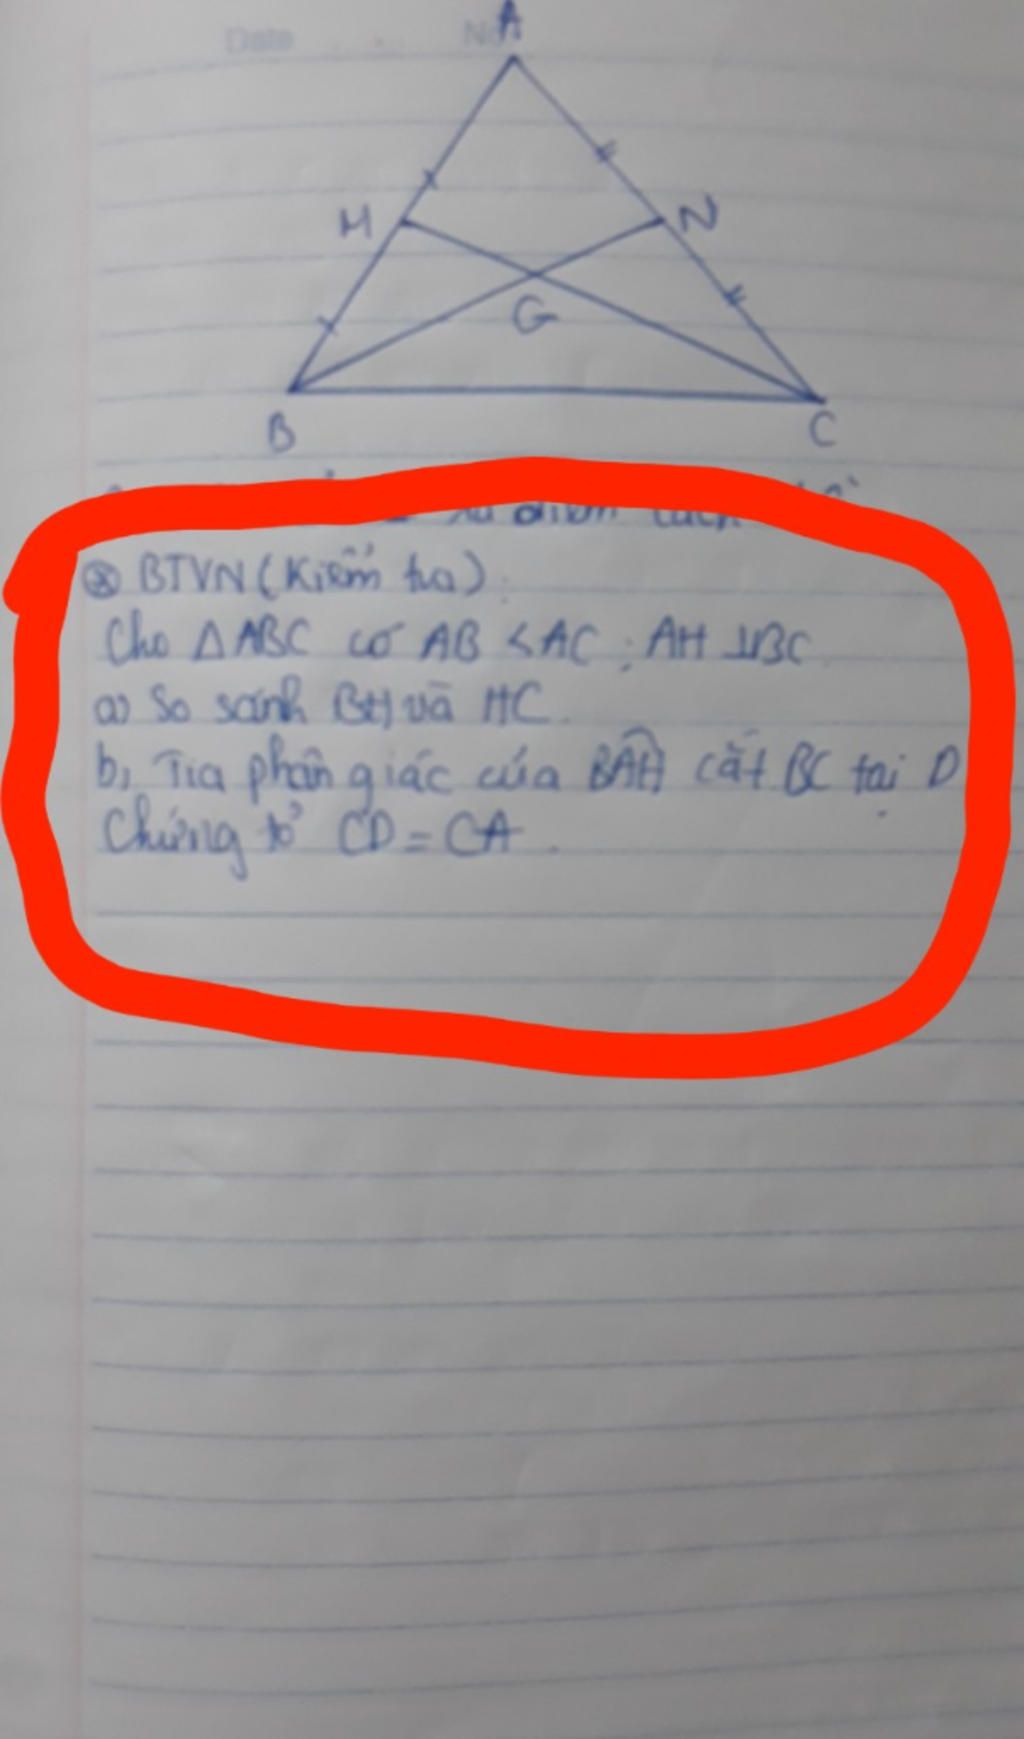 Date No
A
M N
G
B C
BTVN (Kiểm tra).
Cho ΔABC có AB < AC; AH ⊥ BC
a) So sánh BH và HC.
b, Tia phân giác của BÂH cắt BC tại D
Chứng tỏ CD = CA.